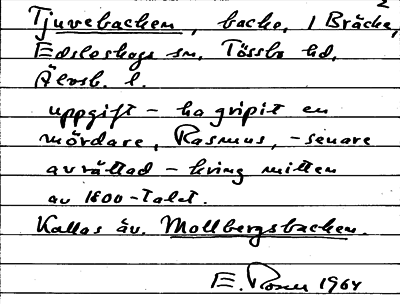 Tjuvebacken, backe, i Bräcke,
Edsleskogs sn, Tössbo hd,
Älvsb. l.
uppgift - ha gripit en
mördare, Rasmus, - senare
avrättad - kring mitten
av 1800-talet.
Kallas äv. Mollbergsbacken.
E. Rosen 1964